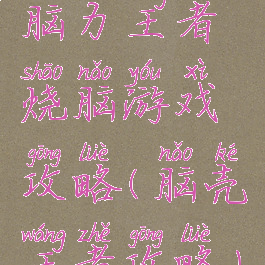 脑力王者
shāo nǎo yóu xì
烧脑游戏
gōng lüè nǎo ké
攻略(脑壳
wáng zhě gōng lüè
王者攻略)